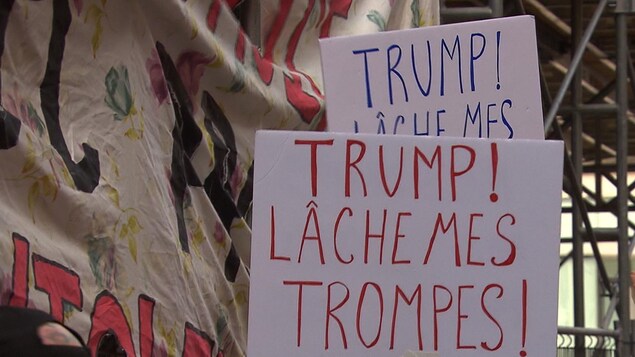 TRUMP!
LÂCHE MES
TRUMP!
LÂCHE MES
TROMPES!